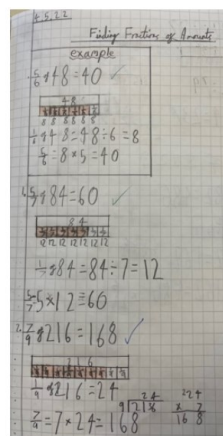 4.5.22
Finding Fractions of Amounts
example
5/6 of 48 = 40 ✓
48
8 8 8 8 8 8
1/6 of 48 = 48 ÷ 6 = 8
5/6 = 8 × 5 = 40
1. 5/7 of 84 = 60 ✓
84
12 12 12 12 12 12 12
1/7 of 84 = 84 ÷ 7 = 12
5/7 5 × 12 = 60
2. 7/9 of 216 = 168 ✓
216
1/9 of 216 = 24
7/9 = 7 × 24 = 168